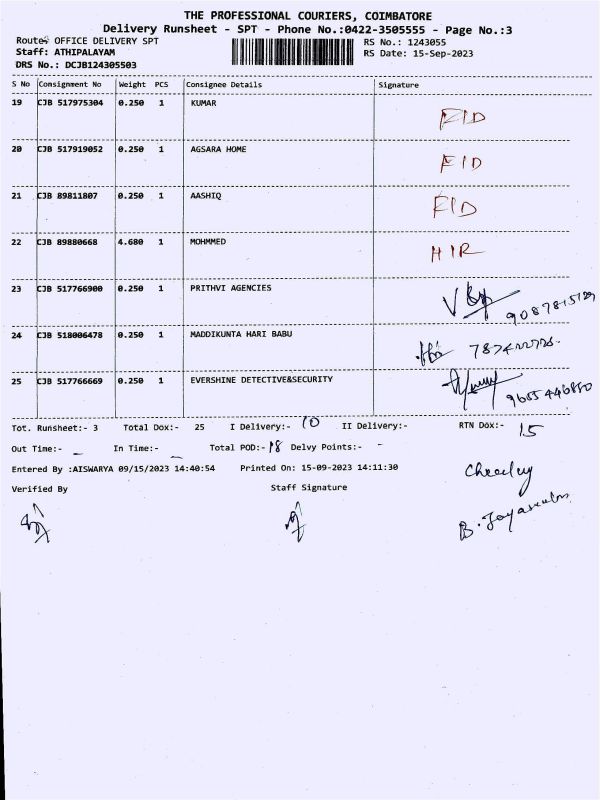 THE PROFESSIONAL COURIERS, COIMBATORE
Delivery Runsheet - SPT - Phone No.:0422-3505555 - Page No.:3
Route: OFFICE DELIVERY SPT RS No.: 1243055
Staff: ATHIPALAYAM RS Date: 15-Sep-2023
DRS No.: DCJB124305503
S No Consignment No Weight PCS Consignee Details Signature
19 CJB 517975304 0.250 1 KUMAR FID
20 CJB 517919052 0.250 1 AGSARA HOME FID
21 CJB 89811807 0.250 1 AASHIQ FID
22 CJB 89880668 4.680 1 MOHMMED HIR
23 CJB 517766900 0.250 1 PRITHVI AGENCIES
24 CJB 518006478 0.250 1 MADDIKUNTA HARI BABU
25 CJB 517766669 0.250 1 EVERSHINE DETECTIVE&SECURITY
Tot. Runsheet:- 3 Total Dox:- 25 I Delivery:- 10 II Delivery:- RTN Dox:- 15
Out Time:- - In Time:- - Total POD:- 18 Delvy Points:- -
Entered By :AISWARYA 09/15/2023 14:40:54 Printed On: 15-09-2023 14:11:30
Verified By Staff Signature